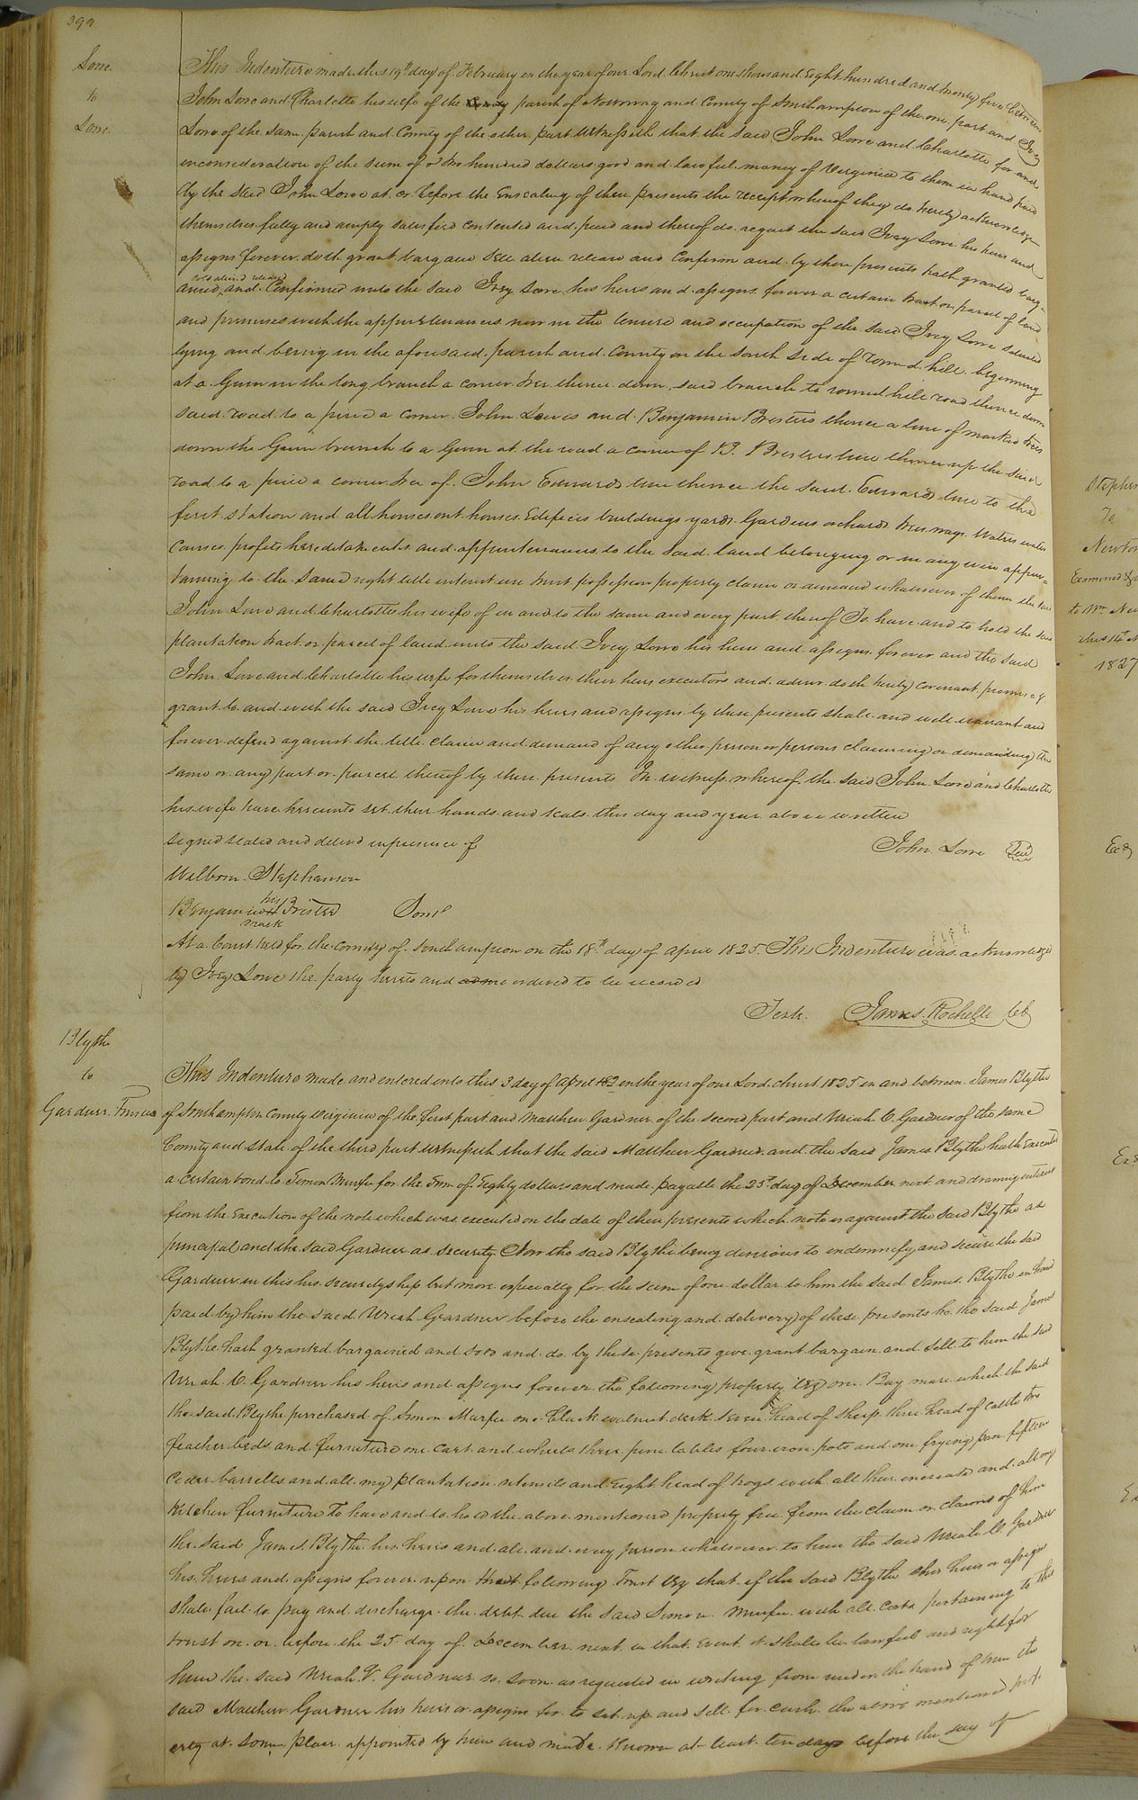 Love
to
Love
This Indenture made this 19th day of February in the year of our Lord Christ one thousand Eight hundred and twenty five between
John Love and Charlotte his wife of the parish of Nottoway and County of Southampton of the one part and Ivey
Love of the same parish and County of the other part Witnesseth that the said John Love and Charlotte for and
inconsideration of the sum of two hundred dollars good and lawful money of Virginia to them in hand paid
by the said John Love at or before the Ensealing of these presents the receipt whereof they do hereby acknowledge
themselves fully and amply satisfied contented and paid and thereof do acquit the said Ivey Love his heirs and
assigns forever doth grant bargain sell alien release and Confirm and by these presents hath granted barg-
sold aliend released
ained and Confirmed unto the said Ivey Love his heirs and assigns forever a certain tract or parcel of land
and premises with the appurtenances now in the tenure and occupation of the said Ivey Love situated
lying and being in the aforesaid parish and County on the South Side of round hill beginning
at a Gum in the long branch a corner tree thence down said branch to round hill road thence down
said road to a pine a corner John Lewis and Benjamin Bristers thence a line of marked trees
down the Gum branch to a Gum at the road a corner of B. Bristers line thence up the said
road to a pine a corner tree of John Edwards line thence the said Edwards line to the
first station and all houses out houses Edifices buildings yards Gardens orchards trees ways Waters water
Courses profits hereditaments and appurtenances to the said land belonging or in any wise apper-
taining to the same right title interest use trust possession property claim or demand whatsoever of them the said
John Love and Charlotte his wife of in and to the same and every part thereof To have and to hold the said
plantation tract or parcel of land unto the said Ivey Love his heirs and assigns forever and the said
John Love and Charlotte his wife for themselves their heirs executors and admr doth hereby covenant promise &
grant to and with the said Ivey Love his heirs and assigns by these presents shall and will warrant and
forever defend against the title claim and demand of any other person or persons claiming or demanding the
same or any part or parcel thereof by these presents In witness whereof the said John Love and Charlotte
his wife have hereunto set their hands and seals this day and year above written
signed sealed and delivd in presence of
John Love Seal
Welborn Stephenson
his
Benjamin Brister
mark
At a Court held for the County of Southampton on the 18th day of april 1825 This Indenture was acknowledged
by Ivey Love the party hereto and ordered to be recorded
Teste James Rochelle Clk
Blythe
to
Gardner Trustee
This Indenture made and entered into this 3 day of April in the year of our Lord christ 1825 in and between James Blythe
of Southampton County Virginia of the first part and Matthew Gardner of the second part and Uriah C. Gardner of the same
County and State of the third part witnesseth that the said Matthew Gardner and the said James Blythe hath Executed
a certain bond to Simon Murfee for the Sum of Eighty dollars and made payable the 25th day of December next and drawing interest
from the execution of the note which was executed on the date of these presents which note is against the said Blythe as
principal and the said Gardner as security Now the said Blythe being desirous to indemnify and secure the said
Gardner in this his securityship but more especially for the sum of one dollar to him the said James Blythe in hand
paid by him the said Uriah Gardner before the ensealing and delivery of these presents he the said James
Blythe hath granted bargained and sold and do by these presents give grant bargain and sell to him the said
Uriah C. Gardner his heirs and assigns forever the following property Viz one Bay mare which the said
the said Blythe purchased of Simon Murfee one black walnut desk seven head of sheep three head of cattle two
feather beds and furniture one cart and wheels three pine tables four iron pots and one frying pan fifteen
Cider barrells and all my plantation utensils and Eight head of hogs with all their increase and all my
kitchen furniture To have and to hold the above mentioned property free from the claim or claims of him
the said James Blythe his heirs and all and every person whatsoever to him the said Uriah C. Gardner
his heirs and assigns forever upon following Trust Viz that if the said Blythe his heirs or assigns
shall fail to pay and discharge the debt due the said Simon Murfee with all costs pertaining to this
trust on or before the 25 day of December next in that event it shall be lawful and right for
him the said Uriah C. Gardner so soon as requested in writing from under the hand of him the
said Matthew Gardner his heirs or assigns for to set up and sell for cash the above mentioned prop-
erty at some place appointed by him and made known at least ten days before the day of
to
1827